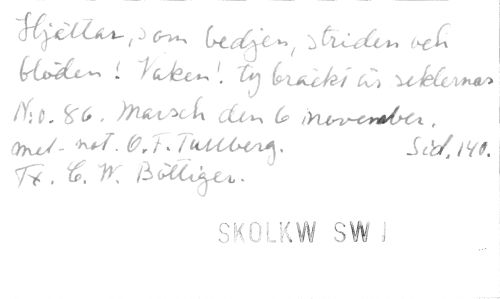 Hjältar, som bedjen, striden och
blöden! Vaken! ty bräckt är seklernas
N:o. 86. Marsch den 6 november.
mel. not. O. F. Tullberg. Sid. 140.
Tx. C. W. Böttiger.
SKOLKW SW